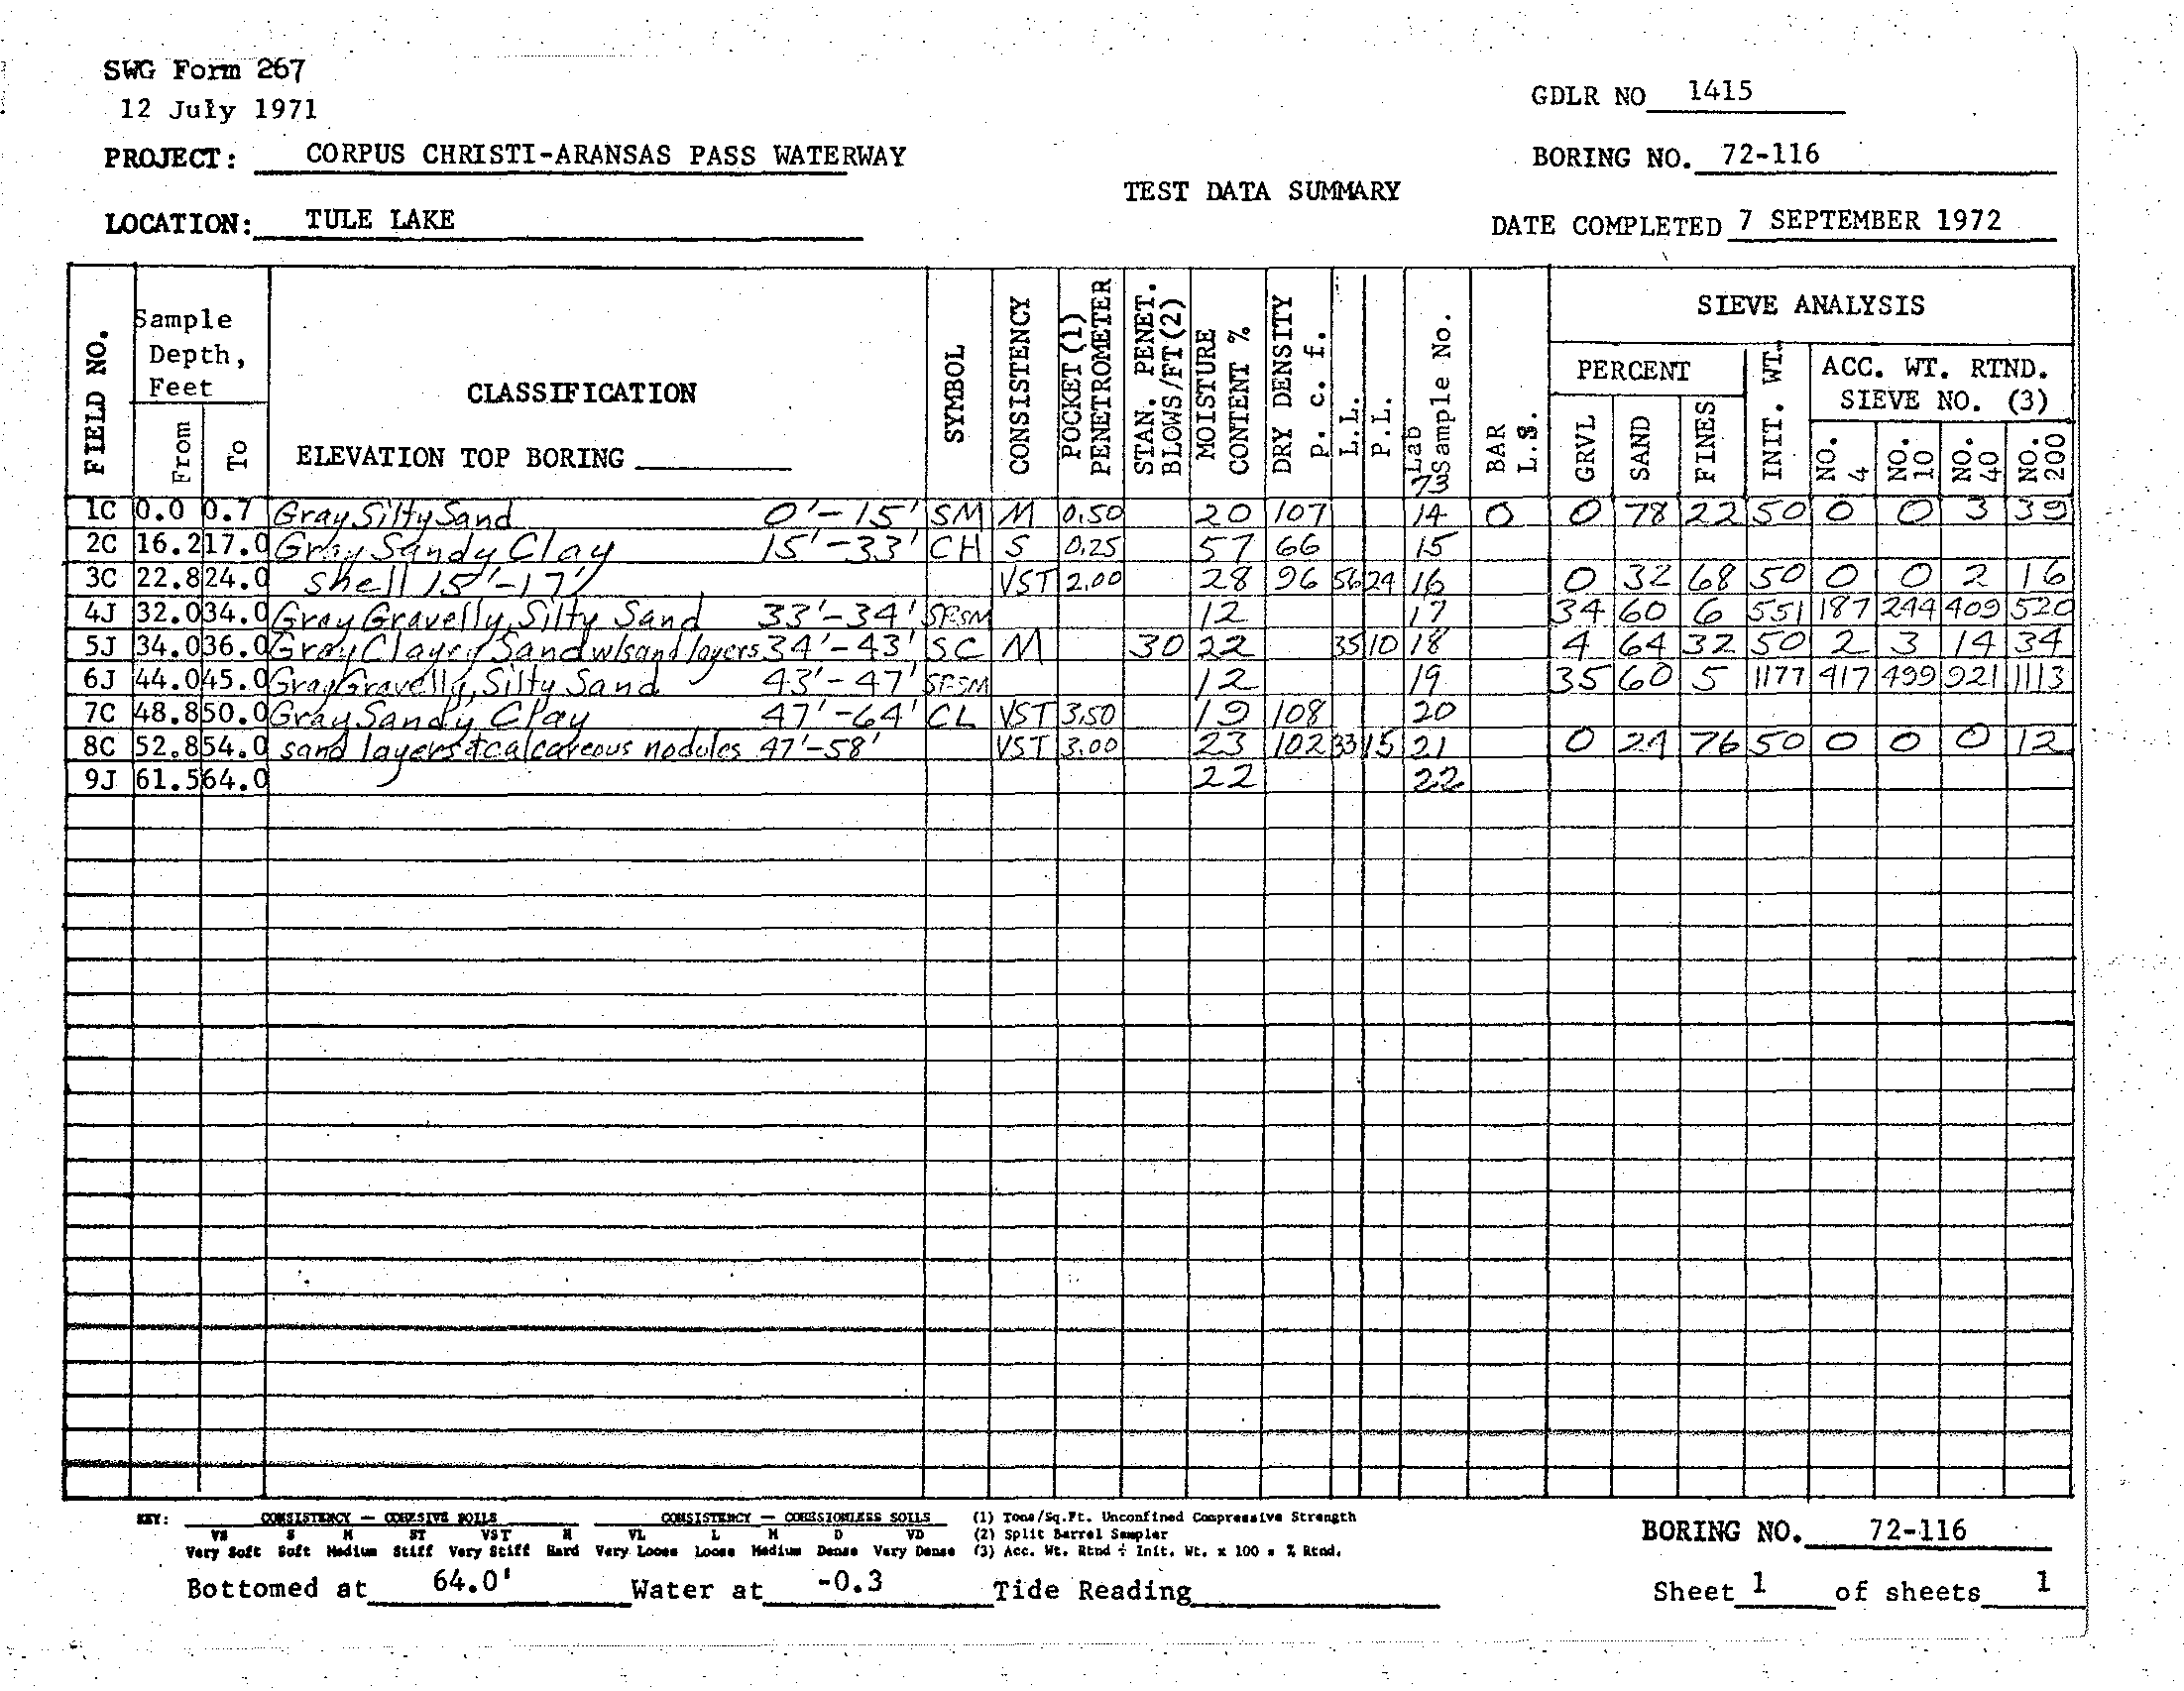 SWG Form 267
12 July 1971
GDLR NO 1415
PROJECT: CORPUS CHRISTI-ARANSAS PASS WATERWAY
BORING NO. 72-116
TEST DATA SUMMARY
LOCATION: TULE LAKE
DATE COMPLETED 7 SEPTEMBER 1972
FIELD NO.
Sample Depth, Feet
From
To
CLASSIFICATION
ELEVATION TOP BORING
SYMBOL
CONSISTENCY
POCKET (1) PENETROMETER
STAN. PENET. BLOWS/FT(2)
MOISTURE CONTENT %
DRY DENSITY p. c. f.
L.L.
P.L.
Lab Sample No.
73
BAR L.S.
SIEVE ANALYSIS
PERCENT
GRVL
SAND
FINES
INIT. WT.
ACC. WT. RTND. SIEVE NO. (3)
NO. 4
NO. 10
NO. 40
NO. 200
1C 0.0 0.7 Gray Silty Sand 0'-15' SM M 0.50 20 107 14 0 0 78 22 50 0 0 3 39
2C 16.2 17.0 Gray Sandy Clay 15'-33' CH S 0.25 57 66 15
3C 22.8 24.0 shell 15'-17' VST 2.00 28 96 56 24 16 0 32 68 50 0 0 2 16
4J 32.0 34.0 Gray Gravelly, Silty Sand 33'-34' SP-SM 12 17 34 60 6 551 187 244 409 520
5J 34.0 36.0 Gray Clayey Sand w/sand layers 34'-43' SC M 30 22 35 10 18 4 64 32 50 2 3 14 34
6J 44.0 45.0 Gray Gravelly, Silty Sand 43'-47' SP-SM 12 19 35 60 5 1177 417 499 921 1113
7C 48.8 50.0 Gray Sandy Clay 47'-64' CL VST 3.50 19 108 20
8C 52.8 54.0 sand layers & calcareous nodules 47'-58' VST 3.00 23 102 33 15 21 0 24 76 50 0 0 0 12
9J 61.5 64.0 22 22
KEY: CONSISTENCY — COHESIVE SOILS CONSISTENCY — COHESSIONLESS SOILS (1) Tons/Sq.Ft. Unconfined Compressive Strength
VS S M ST VST H VL L M D VD (2) Split Barrel Sampler
Very Soft Soft Medium Stiff Very Stiff Hard Very Loose Loose Medium Dense Very Dense (3) Acc. Wt. Rtnd ÷ Init. Wt. x 100 = % Rtnd.
BORING NO. 72-116
Bottomed at 64.0' Water at -0.3 Tide Reading
Sheet 1 of sheets 1